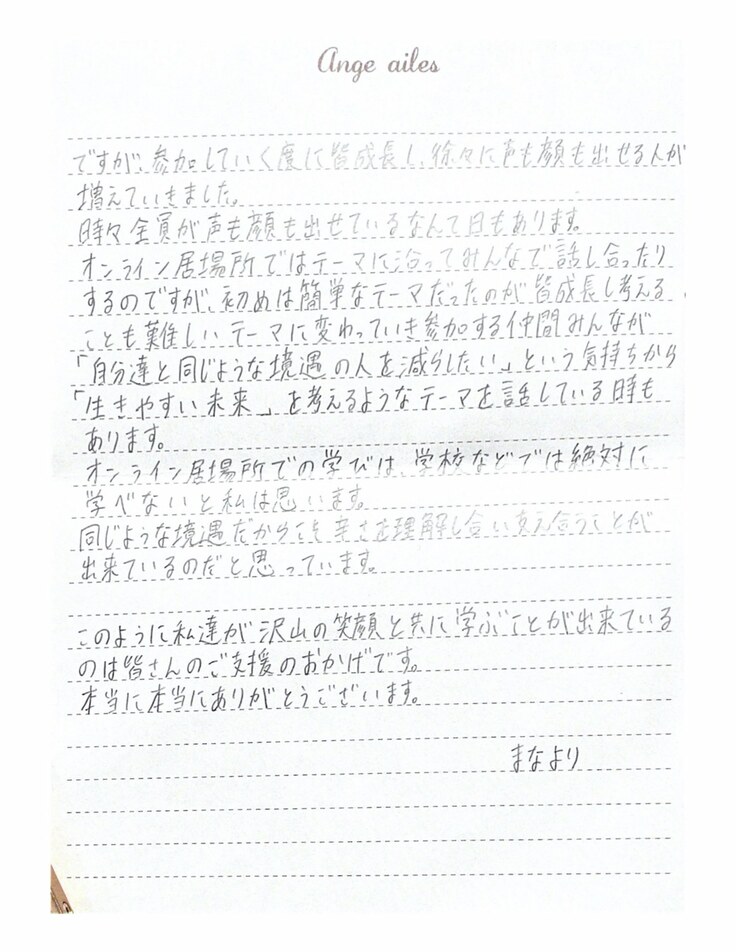 Ange ailes
ですが、参加していく度に皆成長し、徐々に声も顔も出せる人が
増えていきました。
時々全員が声も顔も出せているなんて日もあります。
オンライン居場所ではテーマに沿ってみんなで話し合ったり
するのですが、初めは簡単なテーマだったのが皆成長し考える
ことも難しいテーマに変わっていき参加する仲間みんなが
「自分達と同じような境遇の人を減らしたい」という気持ちから
「生きやすい未来」を考えるようなテーマを話している時も
あります。
オンライン居場所での学びは、学校などでは絶対に
学べないと私は思います。
同じような境遇だからこそ辛さを理解し合い支え合うことが
出来ているのだと思っています。
このように私達が沢山の笑顔と共に学ぶことが出来ている
のは皆さんのご支援のおかげです。
本当に本当にありがとうございます。
まなより